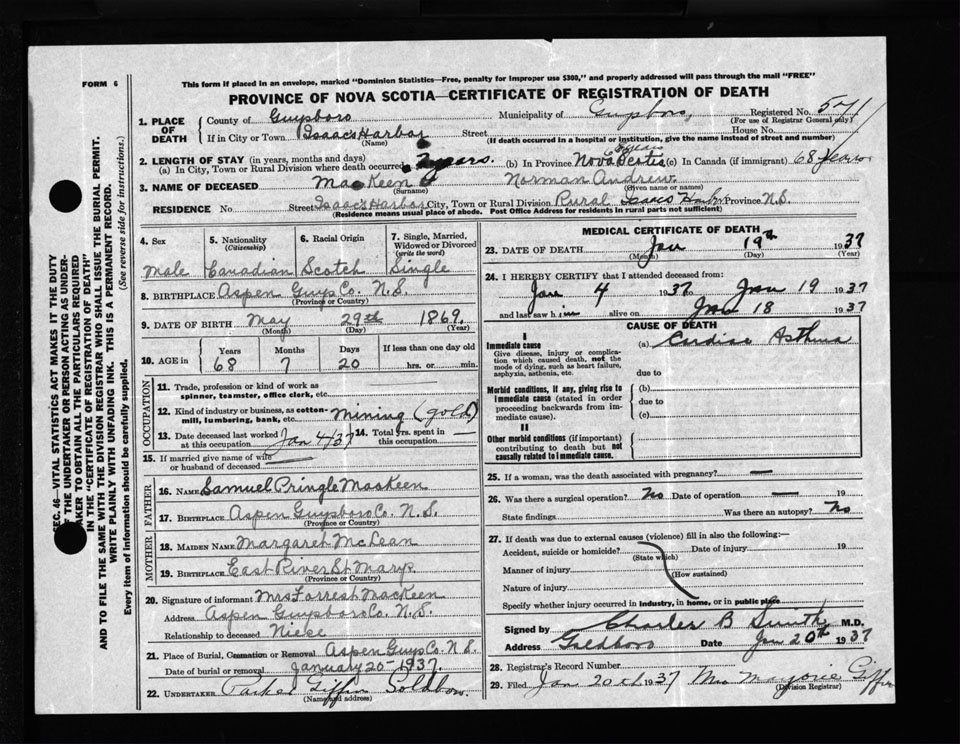 FORM 6
This form if placed in an envelope, marked "Dominion Statistics—Free, penalty for improper use $300," and properly addressed will pass through the mail "FREE"
PROVINCE OF NOVA SCOTIA—CERTIFICATE OF REGISTRATION OF DEATH
SEC. 46—VITAL STATISTICS ACT MAKES IT THE DUTY
OF THE UNDERTAKER OR PERSON ACTING AS UNDER-
TAKER TO OBTAIN ALL THE PARTICULARS REQUIRED
IN THE "CERTIFICATE OF REGISTRATION OF DEATH"
AND TO FILE THE SAME WITH THE DIVISION REGISTRAR WHO SHALL ISSUE THE BURIAL PERMIT.
WRITE PLAINLY WITH UNFADING INK. THIS IS A PERMANENT RECORD.
Every item of information should be carefully supplied. (See reverse side for instructions.)
1. PLACE OF DEATH County of Guysboro Municipality of Guysboro, Registered No. 571
(For use of Registrar General only)
If in City or Town Isaac's Harbor Street House No.
(Name) (If death occurred in a hospital or institution, give the name instead of street and number)
2. LENGTH OF STAY (in years, months and days)
(a) In City, Town or Rural Division where death occurred years. (b) In Province Nova Scotia (c) In Canada (if immigrant) 68 years
3. NAME OF DECEASED MacKeen Norman Andrew
(Surname) (Given name or names)
RESIDENCE No. Street Isaac's Harbor City, Town or Rural Division Rural Isaacs Harbor Province N.S.
(Residence means usual place of abode. Post Office Address for residents in rural parts not sufficient)
4. Sex 5. Nationality (Citizenship) 6. Racial Origin 7. Single, Married, Widowed or Divorced (write the word)
Male Canadian Scotch Single
8. BIRTHPLACE Aspen Guys Co. N.S.
(Province or Country)
9. DATE OF BIRTH May 29th 1869.
(Month) (Day) (Year)
10. AGE in Years Months Days If less than one day old
68 7 20 hrs. or min.
OCCUPATION
11. Trade, profession or kind of work as
spinner, teamster, office clerk, etc.
12. Kind of industry or business, as cotton-
mill, lumbering, bank, etc. Mining (gold)
13. Date deceased last worked at this occupation Jan 4/37 14. Total yrs. spent in this occupation —
15. If married give name of wife
or husband of deceased —
FATHER
16. NAME Samuel Pringle MacKeen
17. BIRTHPLACE Aspen Guysboro Co. N.S.
(Province or Country)
MOTHER
18. MAIDEN NAME Margaret McLean
19. BIRTHPLACE East River St Marys
(Province or Country)
20. Signature of informant Mrs Forrest MacKeen
Address Aspen Guysboro Co. N.S.
Relationship to deceased Niece
21. Place of Burial, Cremation or Removal Aspen Guys Co. N.S.
Date of burial or removal January 20 - 1937.
22. UNDERTAKER Parker Giffin Goldboro.
(Name and address)
MEDICAL CERTIFICATE OF DEATH
23. DATE OF DEATH Jan 19th 1937
(Month) (Day) (Year)
24. I HEREBY CERTIFY that I attended deceased from:
Jan 4 1937 to Jan 19 1937
and last saw him alive on Jan 18 1937
CAUSE OF DEATH
I
Immediate cause (a) Cardiac Asthma
Give disease, injury or complica-
tion which caused death, not the
mode of dying, such as heart failure,
asphyxia, asthenia, etc. due to
Morbid conditions, if any, giving rise to (b)
immediate cause (stated in order
proceeding backwards from im- due to
mediate cause). (c)
II
Other morbid conditions (if important)
contributing to death but not
causally related to immediate cause.
25. If a woman, was the death associated with pregnancy? —
26. Was there a surgical operation? No Date of operation — 19
State findings Was there an autopsy? No
27. If death was due to external causes (violence) fill in also the following:—
Accident, suicide or homicide? Date of injury 19
(State which)
Manner of injury
(How sustained)
Nature of injury
Specify whether injury occurred in industry, in home, or in public place
Signed by Charles B Smith M.D.
Address Goldboro Date Jan 20th 1937
28. Registrar's Record Number
29. Filed Jan 20th 1937 Mrs Marjorie Giffin
(Division Registrar)